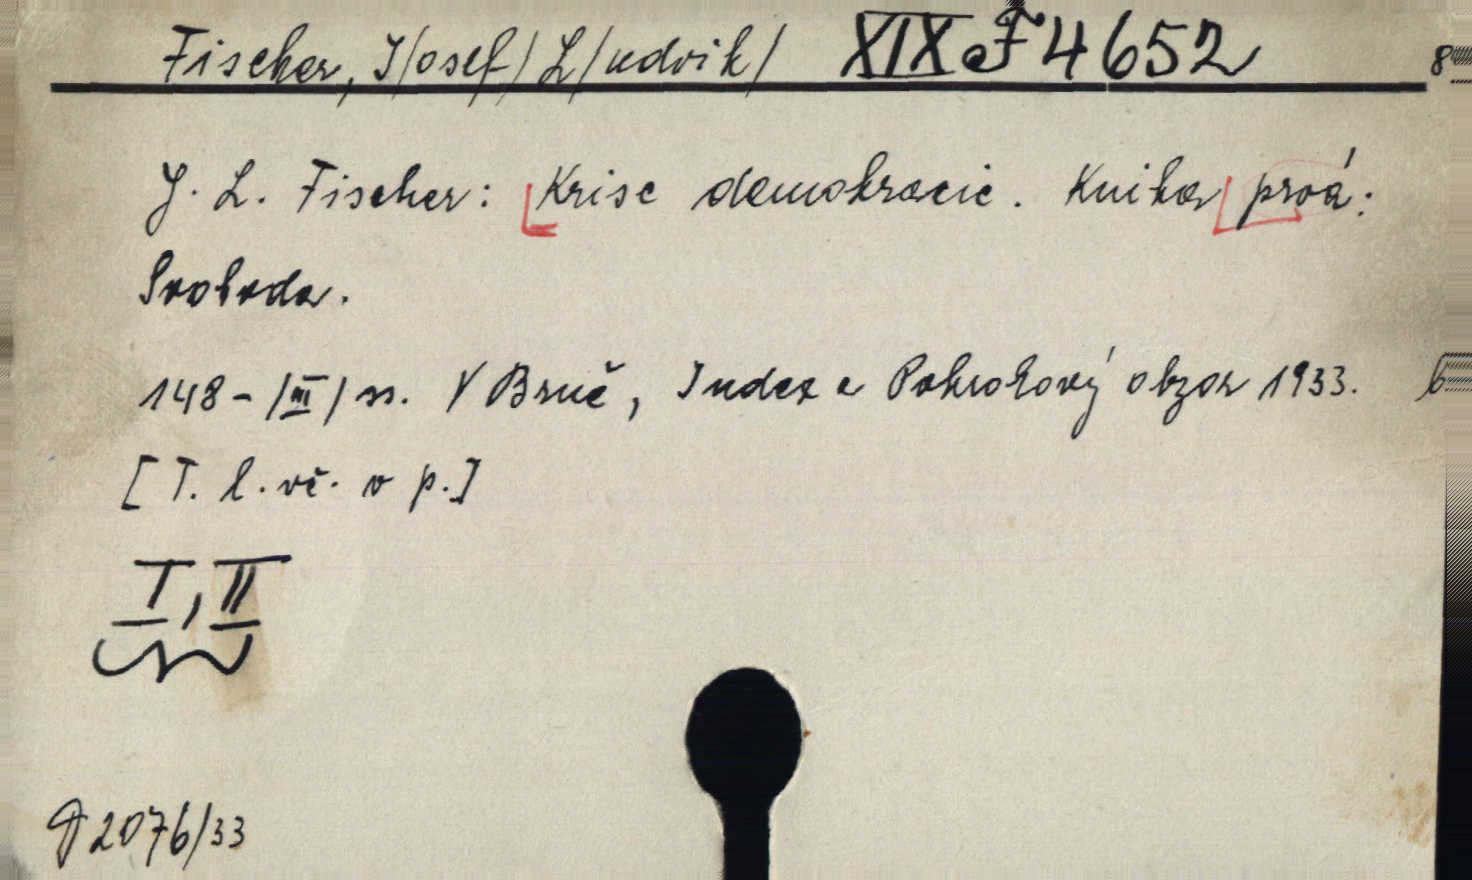 Fischer, J/osef/ L/udvik/ XIX F 4652
J. L. Fischer: Krise demokracie. Kniha prvá:
Svoboda.
148-/III/ ss. V Brně, Index a Pokrokový obzor 1933.
[T. l. vč. v p.]
I, II
2076/33